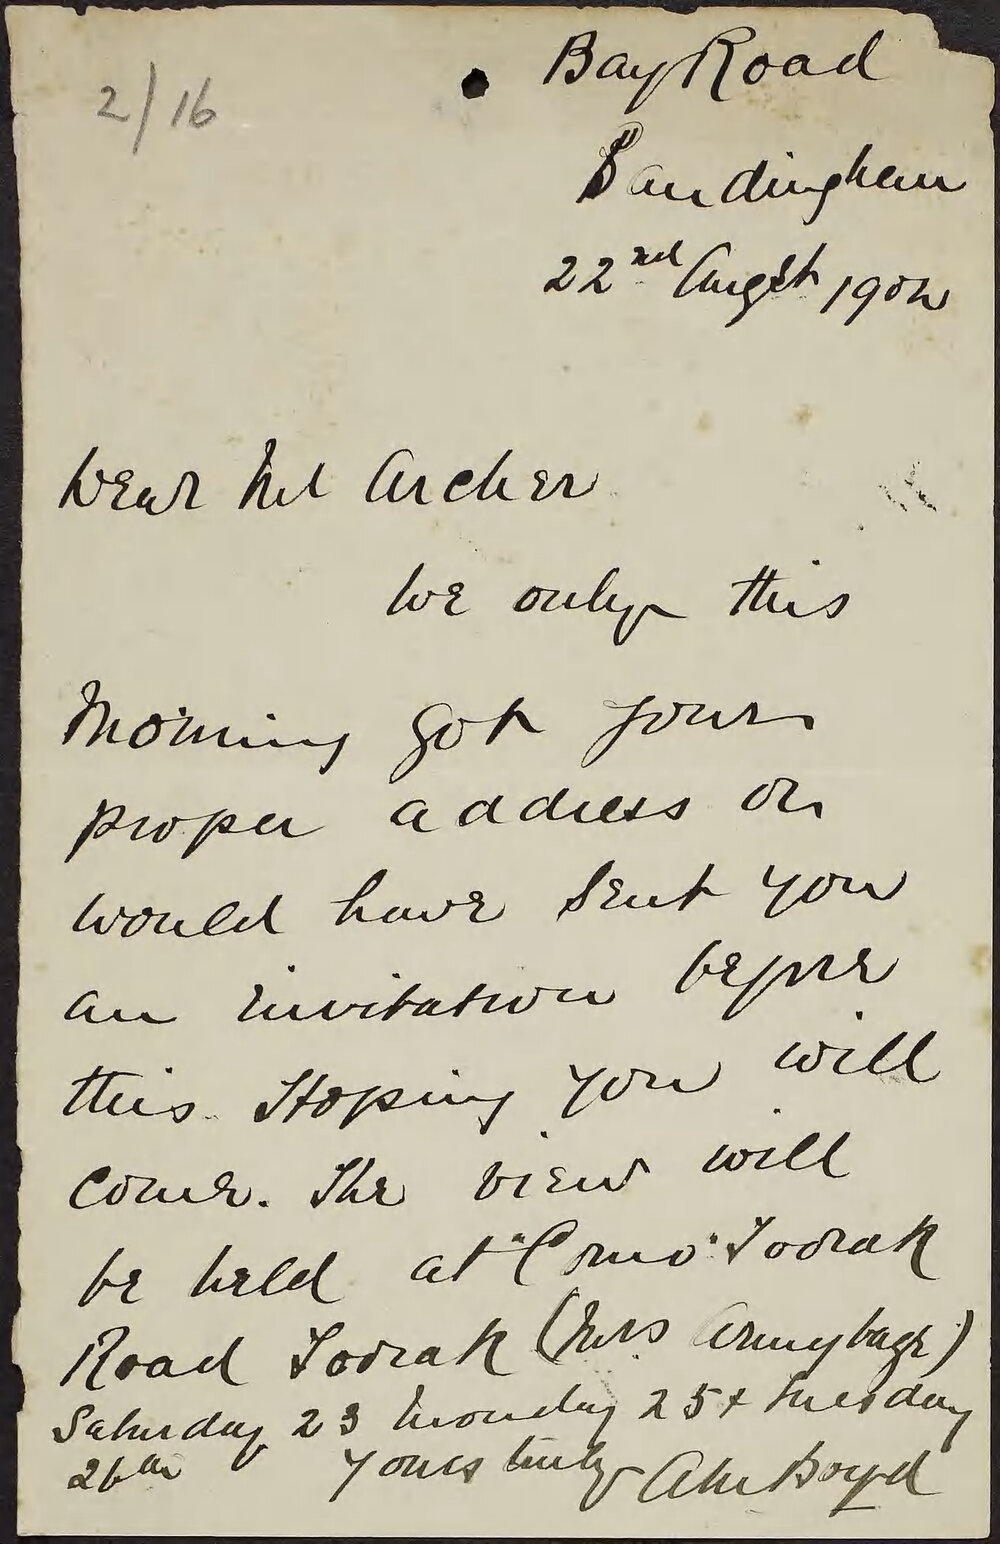 2/16
Bay Road
Sandingham
22nd Augst 1902
Dear Mr Archer
We only this
Morning got your
proper address or
would have sent you
an invitation before
this. Hoping you will
come. The view will
be held at "Como" Toorak
Road Toorak (Mrs Armybage)
Saturday 23 Monday 25 + Tuesday
26th Yours truly AM Boyd